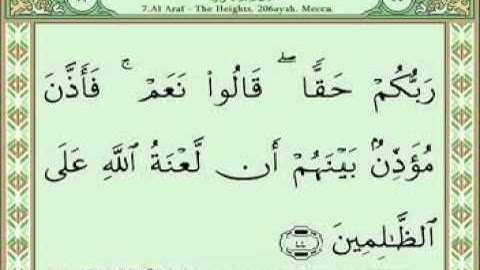 7.Al Araf - The Heights. 206ayah. Mecca.
رَبُّكُمْ حَقًّا ۖ قَالُوا۟ نَعَمْ ۚ فَأَذَّنَ
مُؤَذِّنٌۢ بَيْنَهُمْ أَن لَّعْنَةُ ٱللَّهِ عَلَى
ٱلظَّـٰلِمِينَ